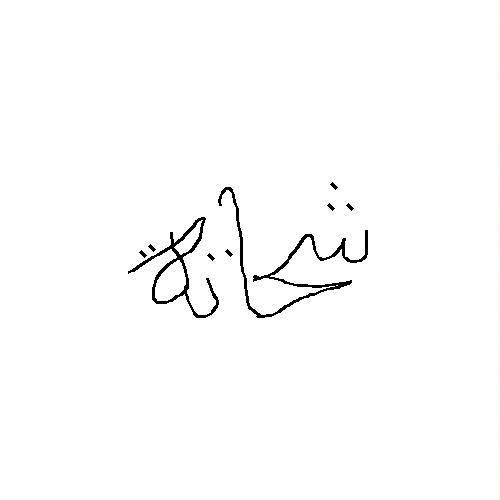 شحاتة